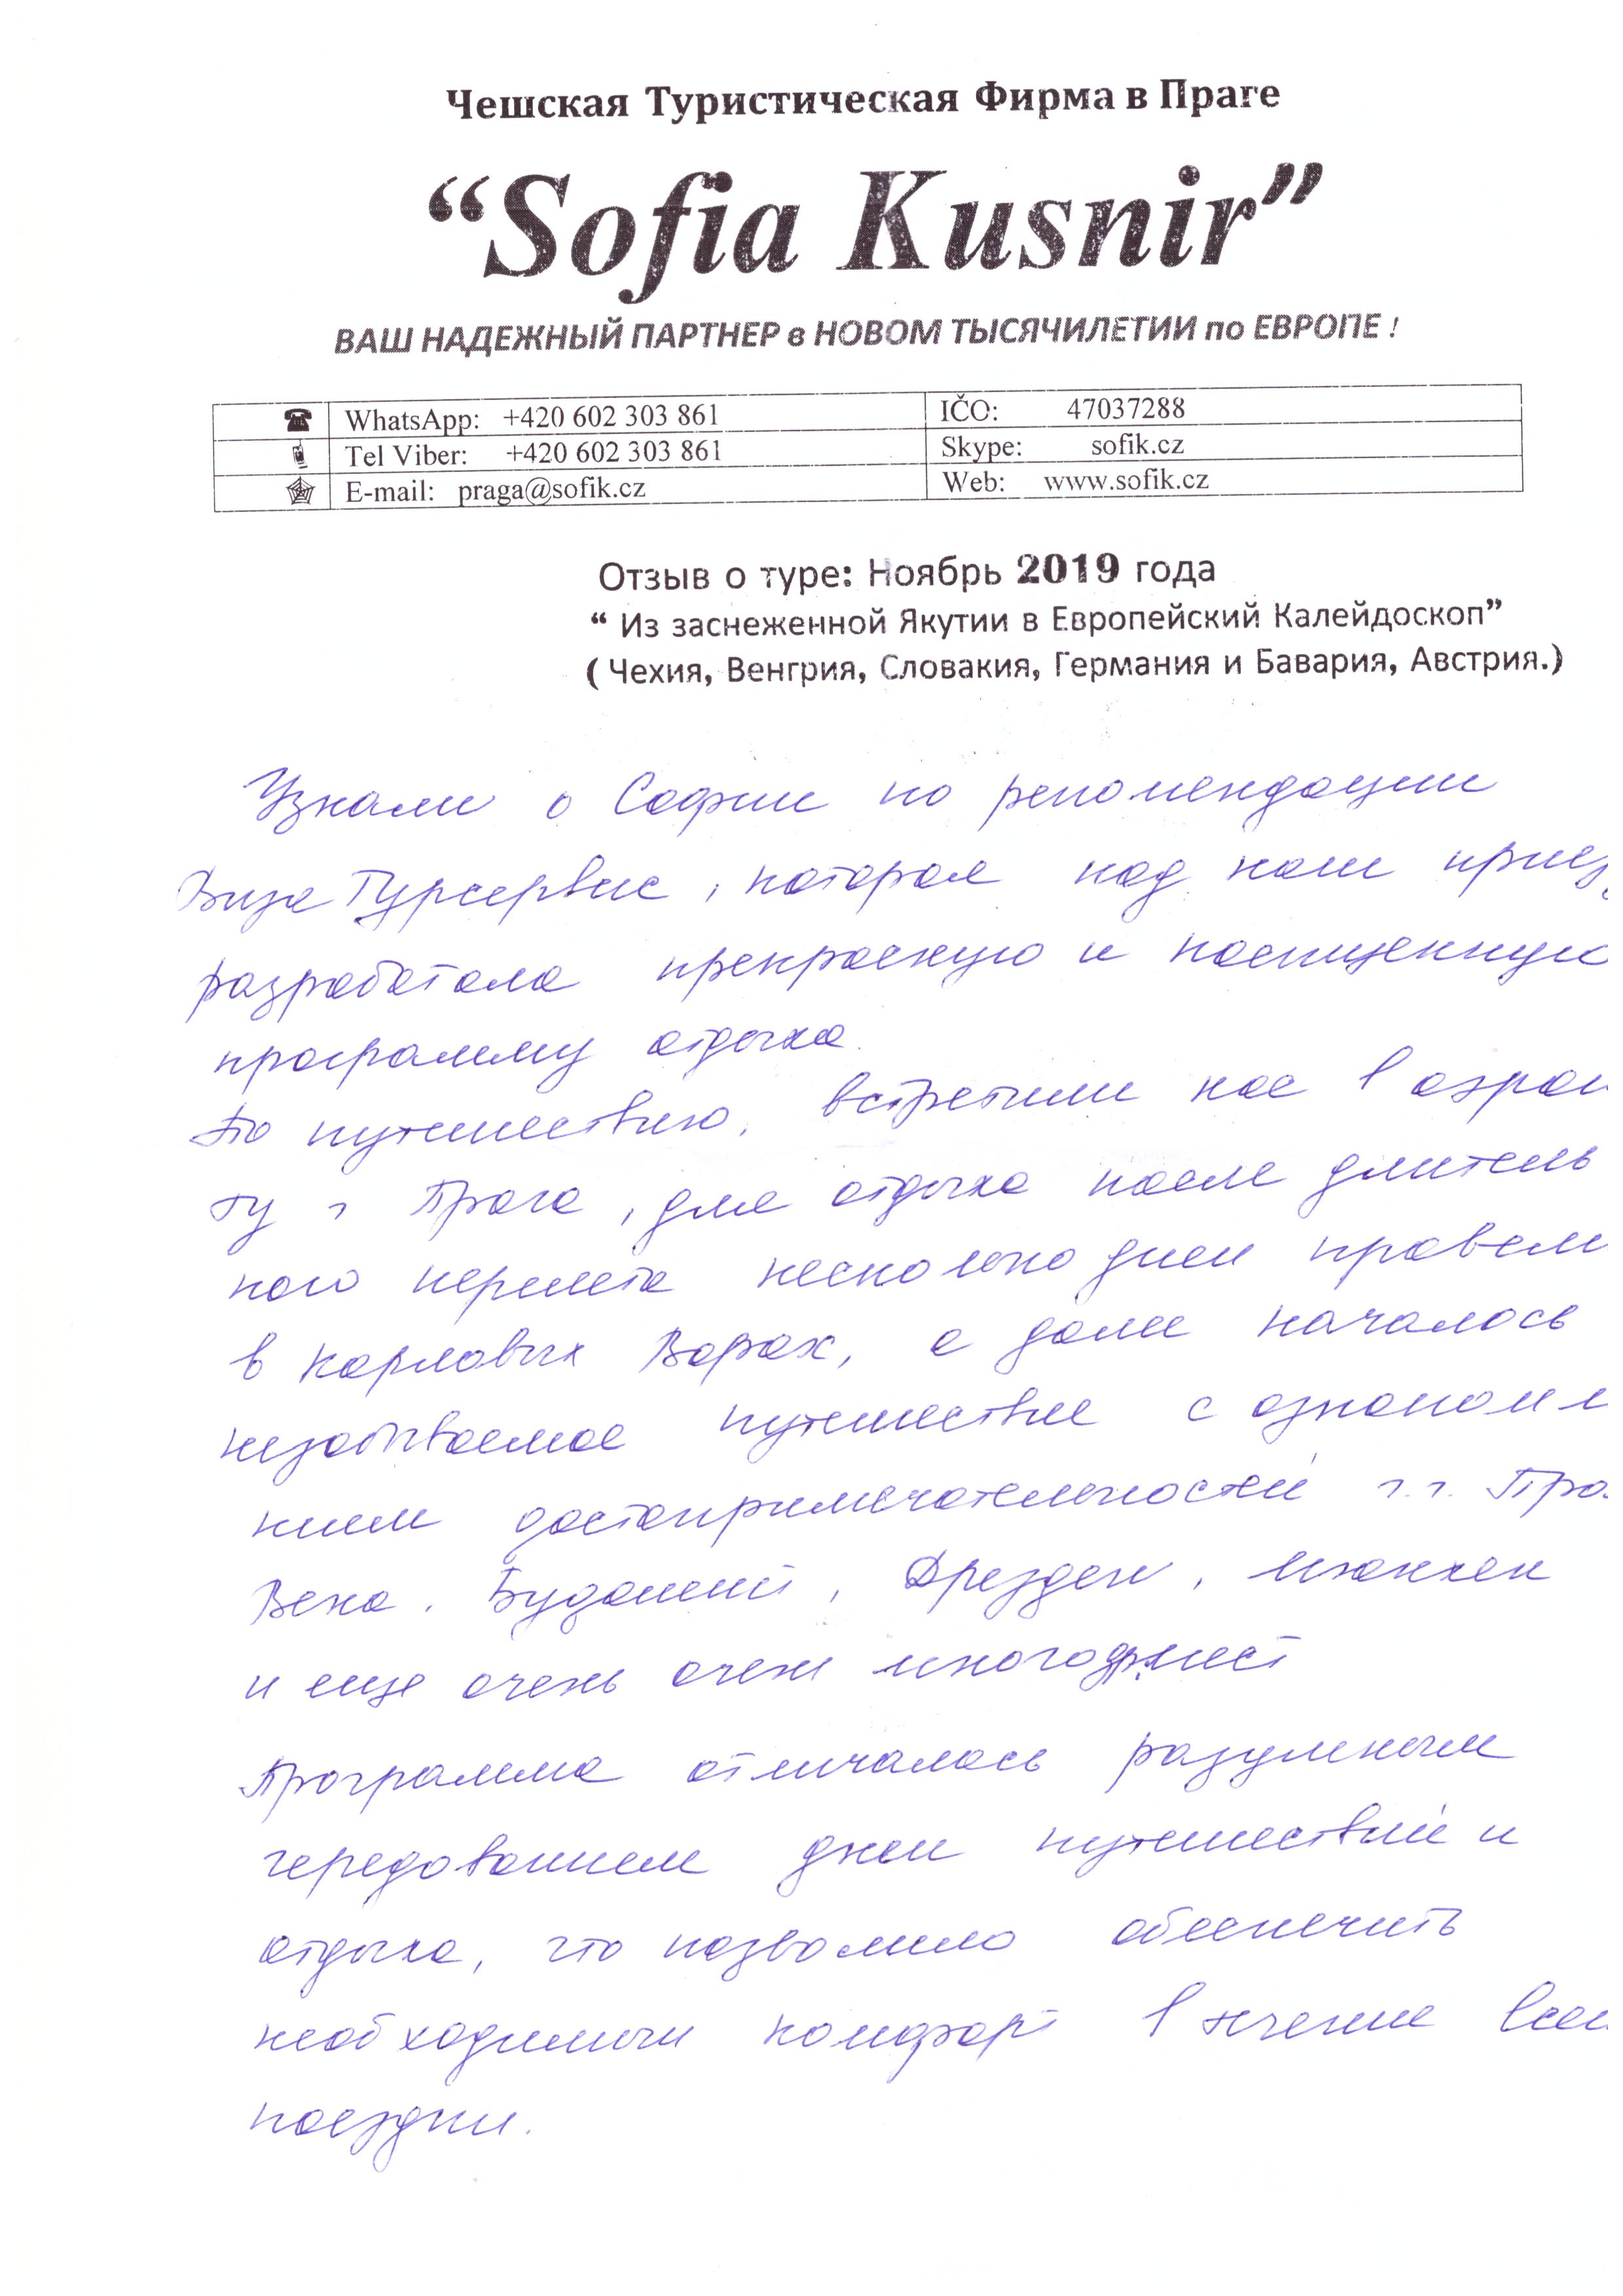 Чешская Туристическая Фирма в Праге
“Sofia Kusnir”
ВАШ НАДЕЖНЫЙ ПАРТНЕР в НОВОМ ТЫСЯЧИЛЕТИИ по ЕВРОПЕ !
WhatsApp: +420 602 303 861 IČO: 47037288
Tel Viber: +420 602 303 861 Skype: sofik.cz
E-mail: praga@sofik.cz Web: www.sofik.cz
Отзыв о туре: Ноябрь 2019 года
“ Из заснеженной Якутии в Европейский Калейдоскоп”
( Чехия, Венгрия, Словакия, Германия и Бавария, Австрия.)
Узнали о Софии по рекомендации
Виза Турсервис, которая под наш приез
разработала прекрасную и насыщенную
программу отдыха.
По путешествию, встретили нас в аэропор
ту г Прага, для отдыха после длитель
ного перелета несколько дней провели
в Карловых Варах, а далее началось
незабываемое путешествие с ознакомле
нием достопримечательностей г.г. Пра
Вена, Будапешт, Дрезден, Мюнхен
и еще очень очень много др. мест
Программа отличалась разумным
чередованием дней путешествий и
отдыха, что позволило обеспечить
необходимый комфорт в течение всей
поездки.